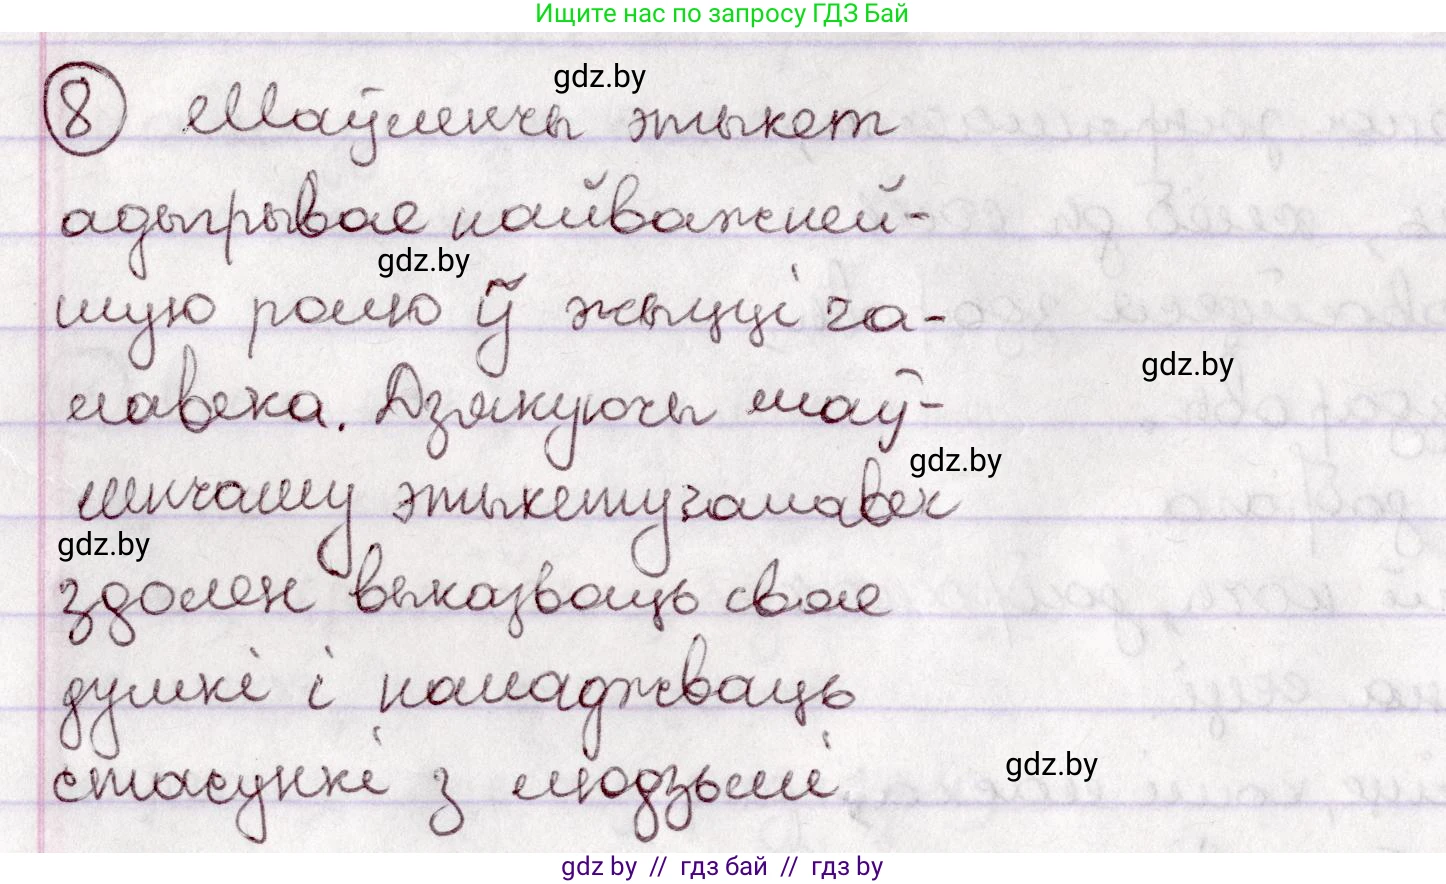 Ищите нас по запросу ГДЗ Бай
gdz.by
8 Маўленчы этыкет
адыгрывае найважней-
gdz.by
шую ролю ў жыцці ча-
gdz.by
лавека. Дзякуючы маў-
gdz.by
ленчаму этыкету чалавек
gdz.by
здолен выказваць свае
думкі і наладжваць
стасункі з людзьмі.
gdz.by
gdz by // гдз бай // гдз by